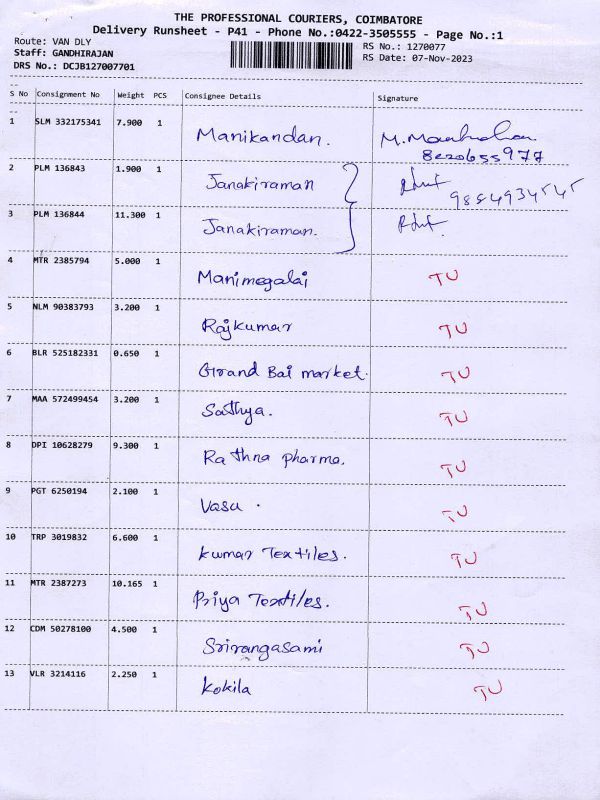 THE PROFESSIONAL COURIERS, COIMBATORE
Delivery Runsheet - P41 - Phone No.:0422-3505555 - Page No.:1
Route: VAN DLY
Staff: GANDHIRAJAN
DRS No.: DCJB127007701
RS No.: 1270077
RS Date: 07-Nov-2023
S No Consignment No Weight PCS Consignee Details Signature
1 SLM 332175341 7.900 1 Manikandan.
8220655977
2 PLM 136843 1.900 1 Janakiraman
9884934545
3 PLM 136844 11.300 1 Janakiraman.
4 MTR 2385794 5.000 1 Manimegalai TU
5 NLM 90383793 3.200 1 Rajkumar TU
6 BLR 525182331 0.650 1 Grand Bai market. TU
7 MAA 572499454 3.200 1 Sathya. TU
8 DPI 10628279 9.300 1 Rathna pharma. TU
9 PGT 6250194 2.100 1 Vasu . TU
10 TRP 3019832 6.600 1 Kumar Textiles. TU
11 MTR 2387273 10.165 1 Priya Textiles. TU
12 CDM 50278100 4.500 1 Srirangasami TU
13 VLR 3214116 2.250 1 Kokila TU